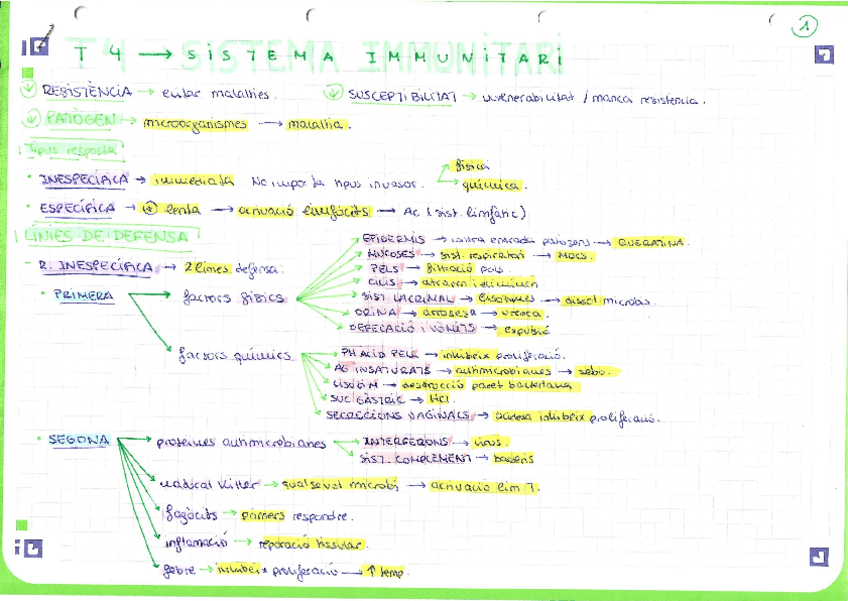 1
T4 → SISTEMA IMMUNITARI
RESISTÈNCIA → evitar malalties. SUSCEPTIBILITAT → vulnerabilitat / manca resistència.
PATÒGEN → microorganismes → malaltia.
Tipus resposta
• INESPECÍFICA → immediata No importa tipus invasor. física
química.
• ESPECÍFICA → + lenta → activació limfòcits → Ac (sist. limfàtic)
LÍNIES DE DEFENSA
- R. INESPECÍFICA → 2 línies defensa.
EPIDERMIS → contra entrada patògens → QUERATINA.
MUCOSES → sist. respiratori → MOCS.
PELS → filtració pols.
CILIS → atrapen i eliminen
• PRIMERA → factors físics
SIST. LACRIMAL → lisozimes → dissol microbis.
ORINA → arrossega → uretra.
DEFECACIÓ I VÒMITS → expulsió
factors químics
PH ÀCID PELL → inhibeix proliferació.
AG INSATURATS → antimicrobianes → sebo.
→ destrucció paret bacteriana
SUC GÀSTRIC → HCl.
SECRECIONS VAGINALS → acidesa inhibeix proliferació.
• SEGONA → proteïnes antimicrobianes → INTERFERONS → virus.
SIST. COMPLEMENT → bacteris
Killer → qualsevol microbi → activació lim T.
fagòcits → primers respondre.
inflamació → reparació tissular.
febre → inhibeix proliferació → ↑ temp.